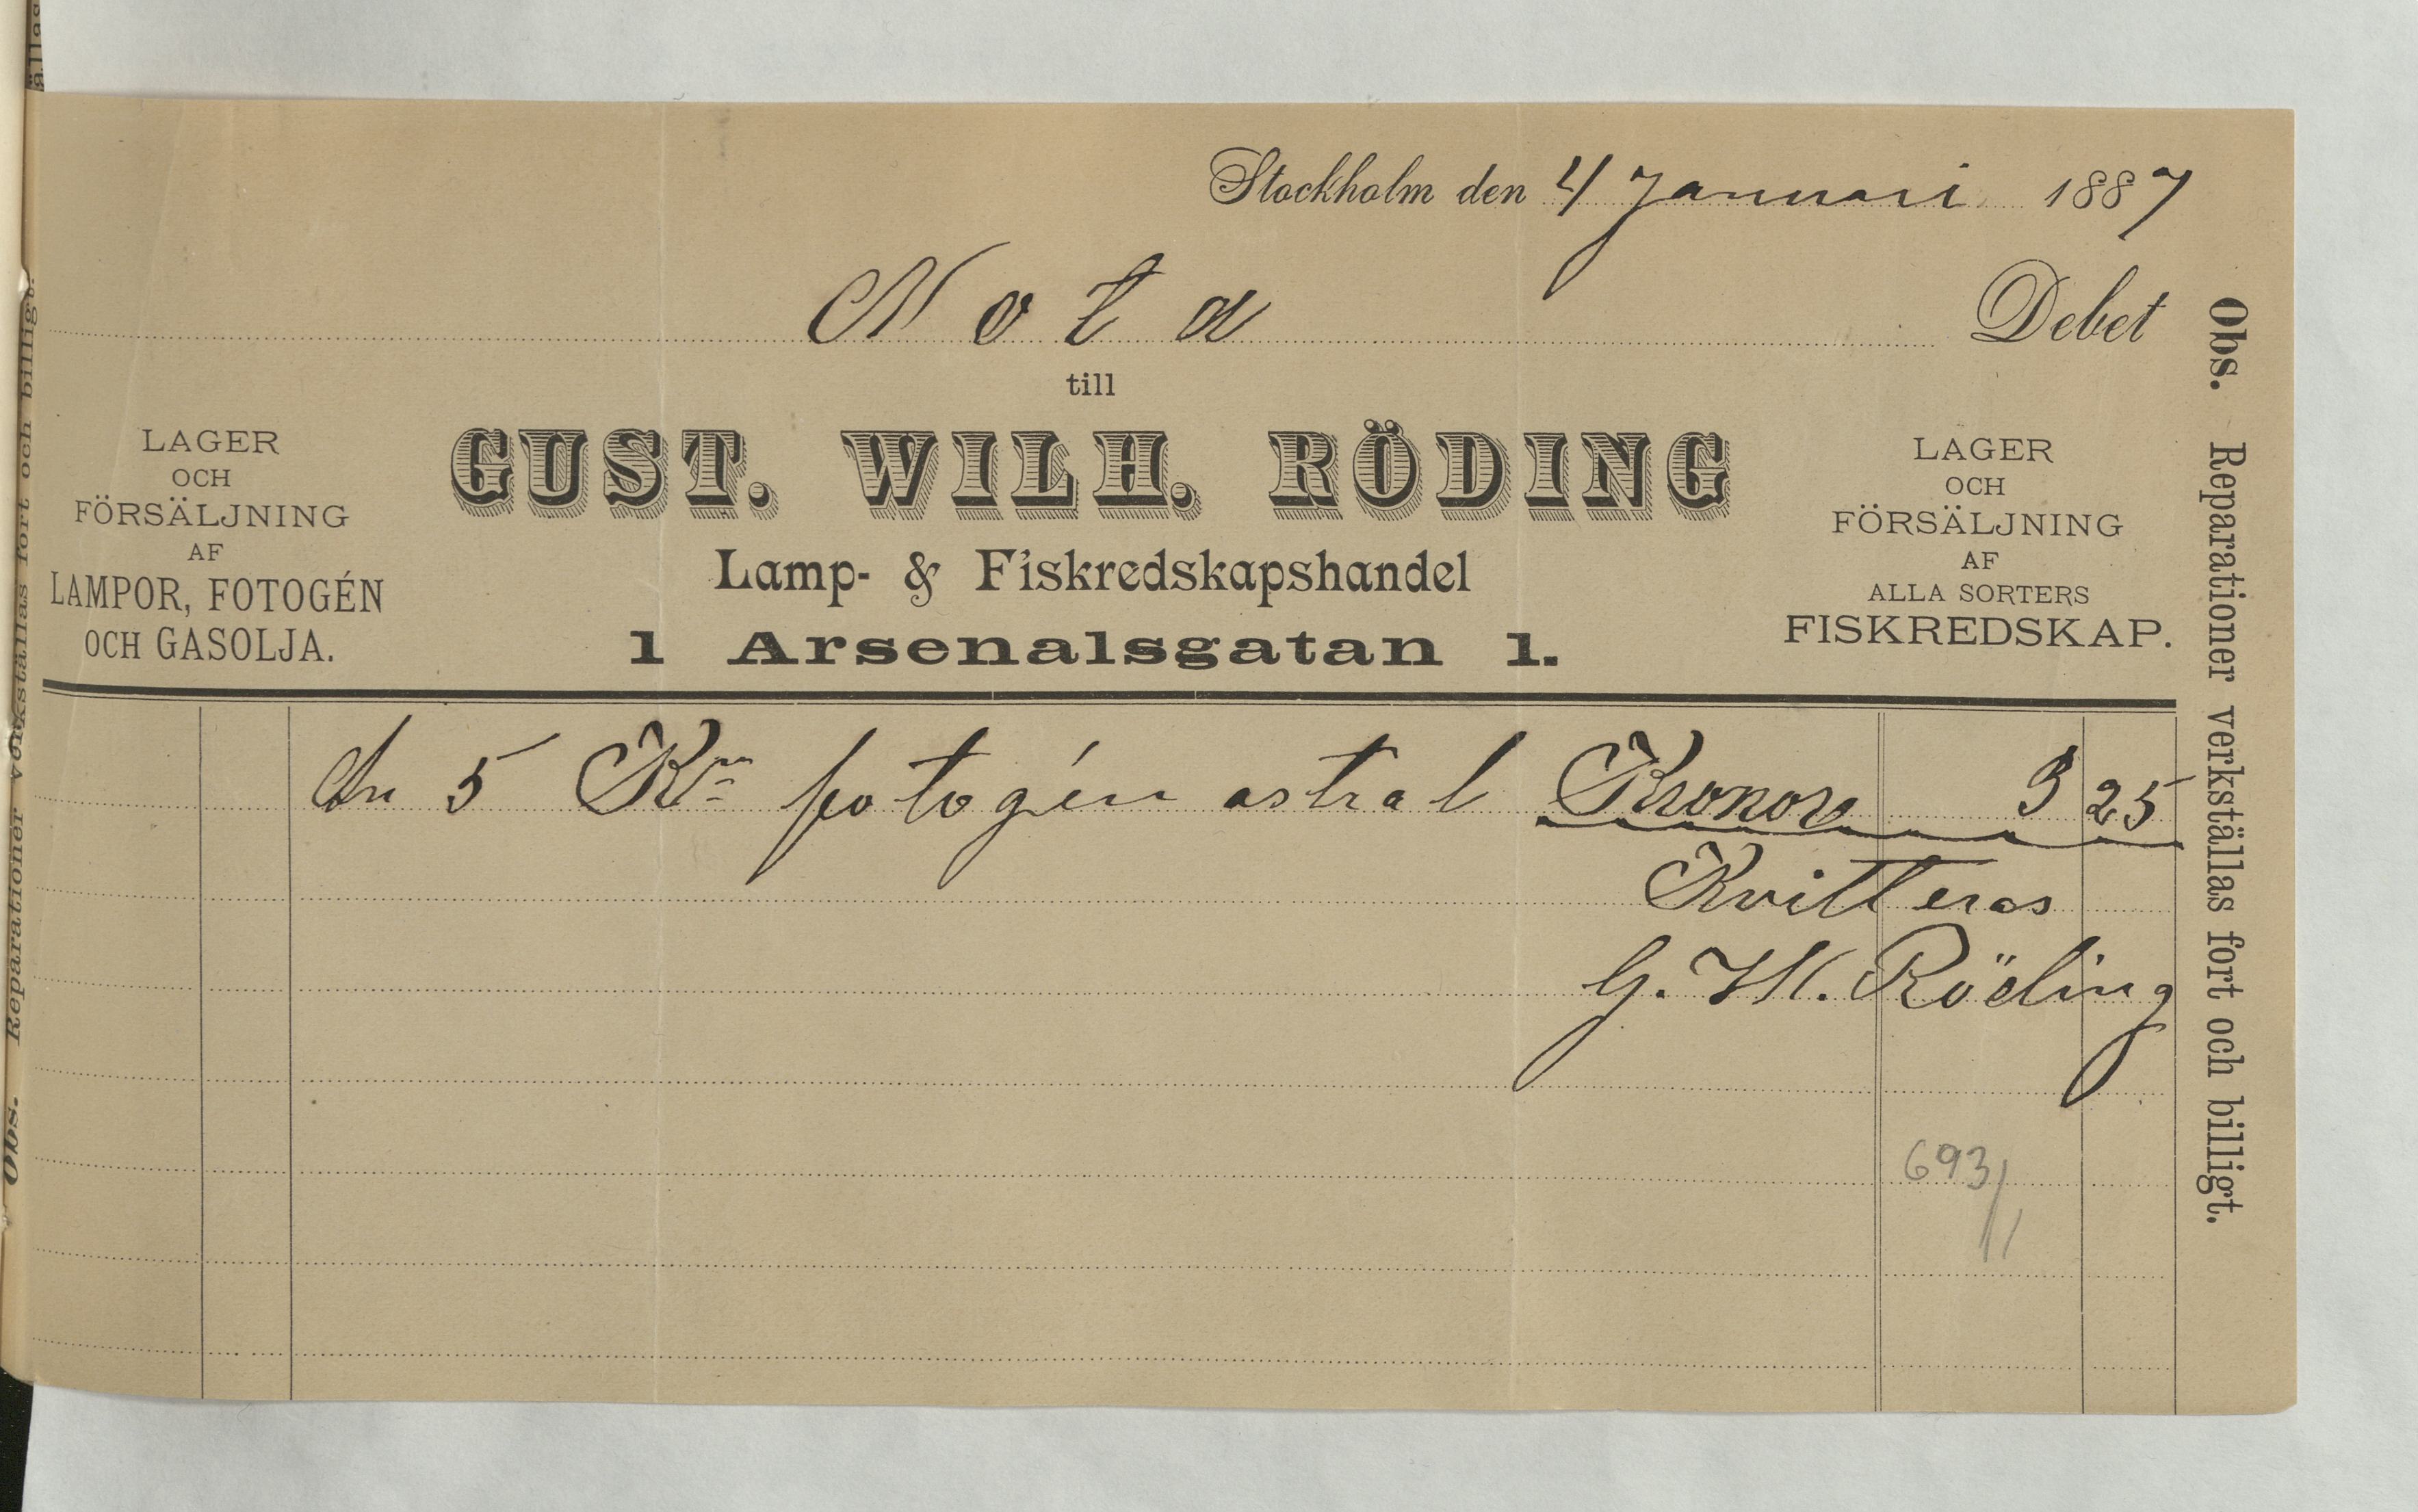 Stockholm den 4 Januari 1887
Nota Debet
till
GUST. WILH. RÖDING
Lamp- & Fiskredskapshandel
1 Arsenalsgatan 1.
LAGER
OCH
FÖRSÄLJNING
AF
LAMPOR, FOTOGÉN
OCH GASOLJA.
LAGER
OCH
FÖRSÄLJNING
AF
ALLA SORTERS
FISKREDSKAP.
An 5 Kr fotogén astral Kronor 3 25
Kvitteras
G. W. Röding
693/1
Obs. Reparationer verkställas fort och billigt.
Obs. Reparationer verkställas fort och billigt.
ällas